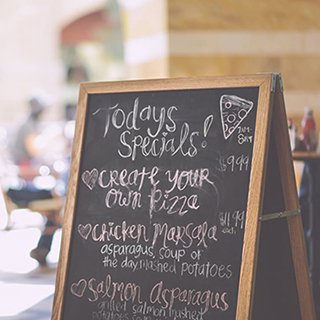 Todays
Specials!
11AM-
8PM
$9.99
♡CREATE YOUR
OWN PIZZA
$11.99
each
♡CHICKEN MARSALA
asparagus, soup of
the day, mashed potatoes
♡SALMON ASPARAGUS
grilled salmon mashed
potatoes soup